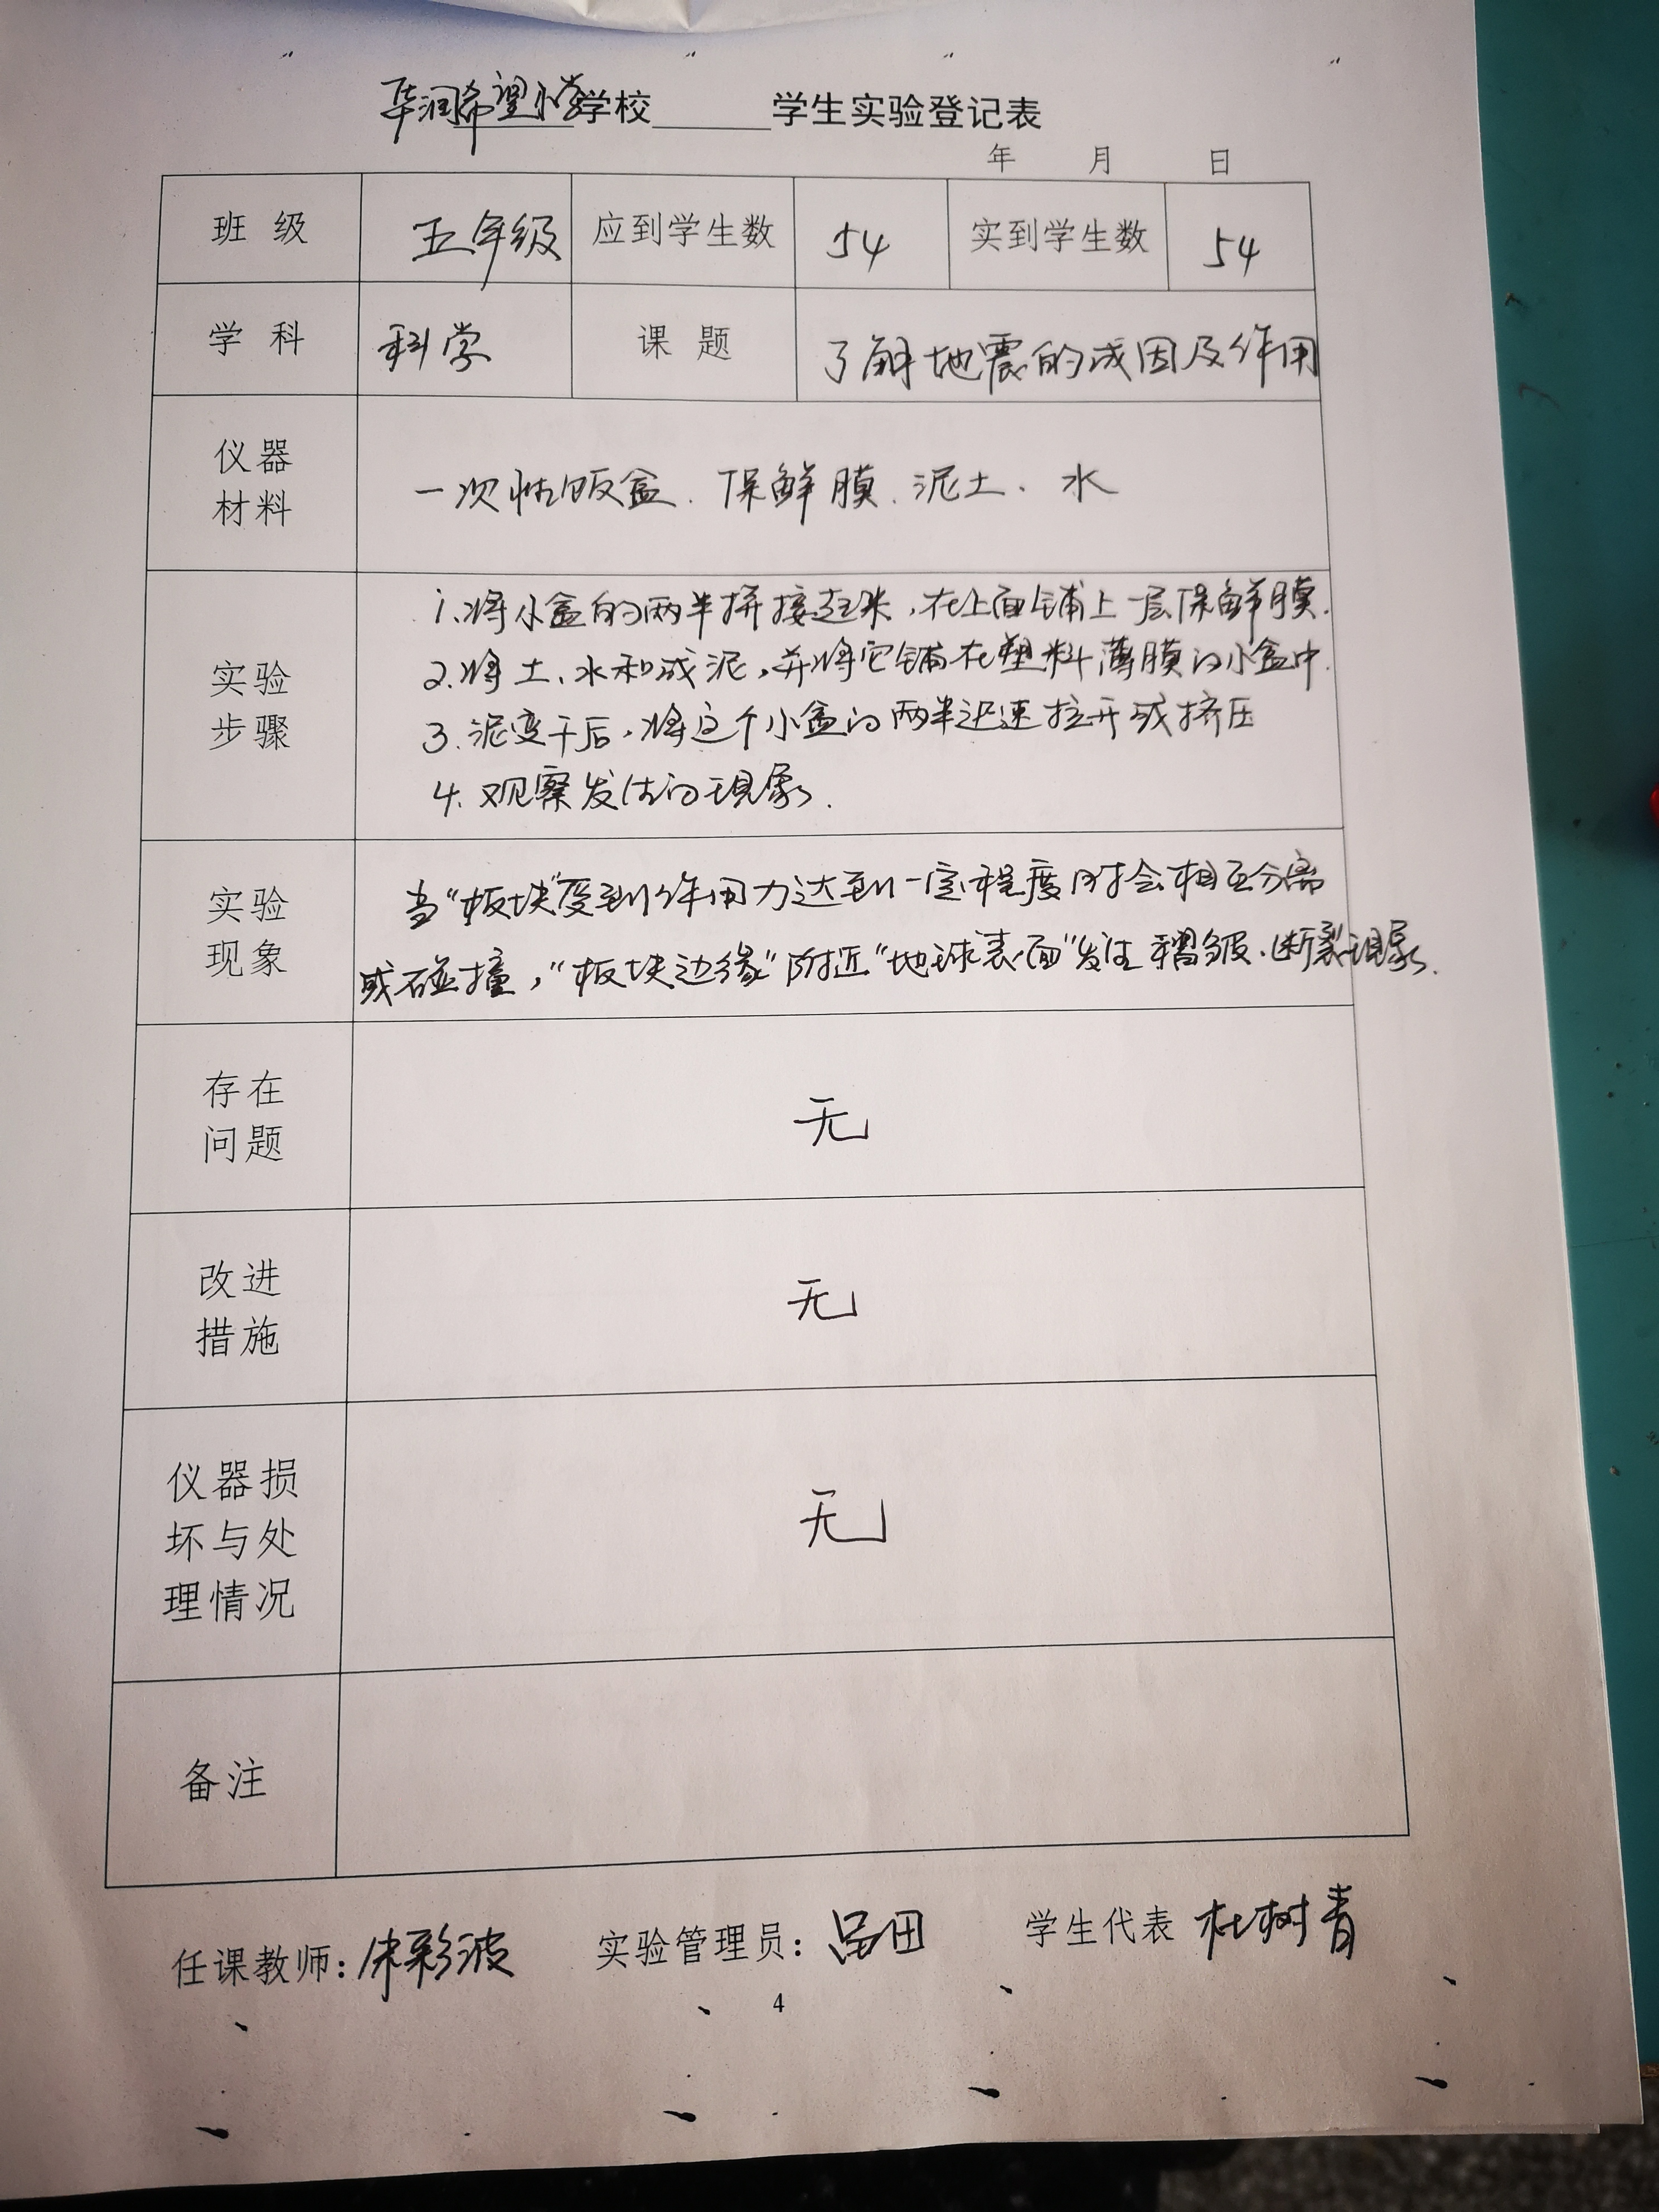 华润希望小学学校______学生实验登记表
年 月 日
班 级 五年级 应到学生数 54 实到学生数 54
学 科 科学 课 题 了解地震的成因及作用
仪器
材料
一次性饭盒、保鲜膜、泥土、水
实验
步骤
1.将小盒的两半拼接起来,在上面铺上一层保鲜膜.
2.将土、水和成泥,并将它铺在塑料薄膜的小盒中.
3.泥变干后,将这个小盒的两半迅速拉开或挤压
4.观察发生的现象.
实验
现象
当“板块”受到作用力达到一定程度时会相互分离
或碰撞,“板块边缘”附近“地球表面”发生褶皱、断裂现象.
存在
问题
无
改进
措施
无
仪器损
坏与处
理情况
无
备注
任课教师: 彩波 实验管理员: 田 学生代表 杜树青
4